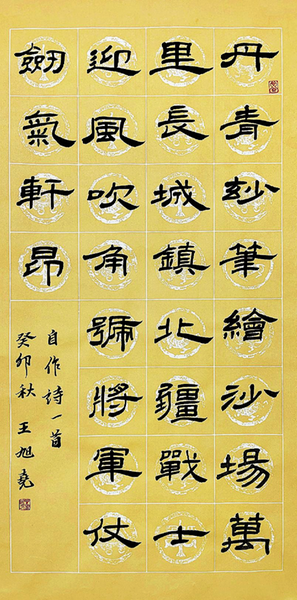 丹青玅筆繪沙場萬
里長城鎮北疆戰士
迎風吹角號將軍仗
劒氣軒昂
自作詩一首
癸卯秋 王旭堯